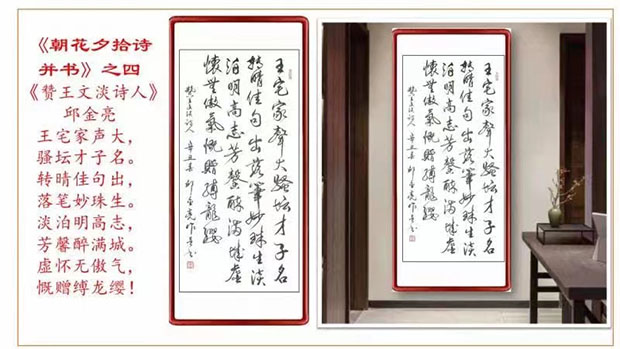 《朝花夕拾诗
并书》之四
《赞王文淡诗人》
邱金亮
王宅家声大，
骚坛才子名。
转晴佳句出，
落笔妙珠生。
淡泊明高志，
芳馨醉满城。
虚怀无傲气，
慨赠缚龙缨！
王宅家聲大騷坛才子名
转晴佳句出落筆妙珠生淡
泊明高志芳馨醉满城虛
懷無傲氣慨贈縛龍纓
王宅家聲大騷坛才子名
转晴佳句出落筆妙珠生淡
泊明高志芳馨醉满城虛
懷無傲氣慨贈縛龍纓